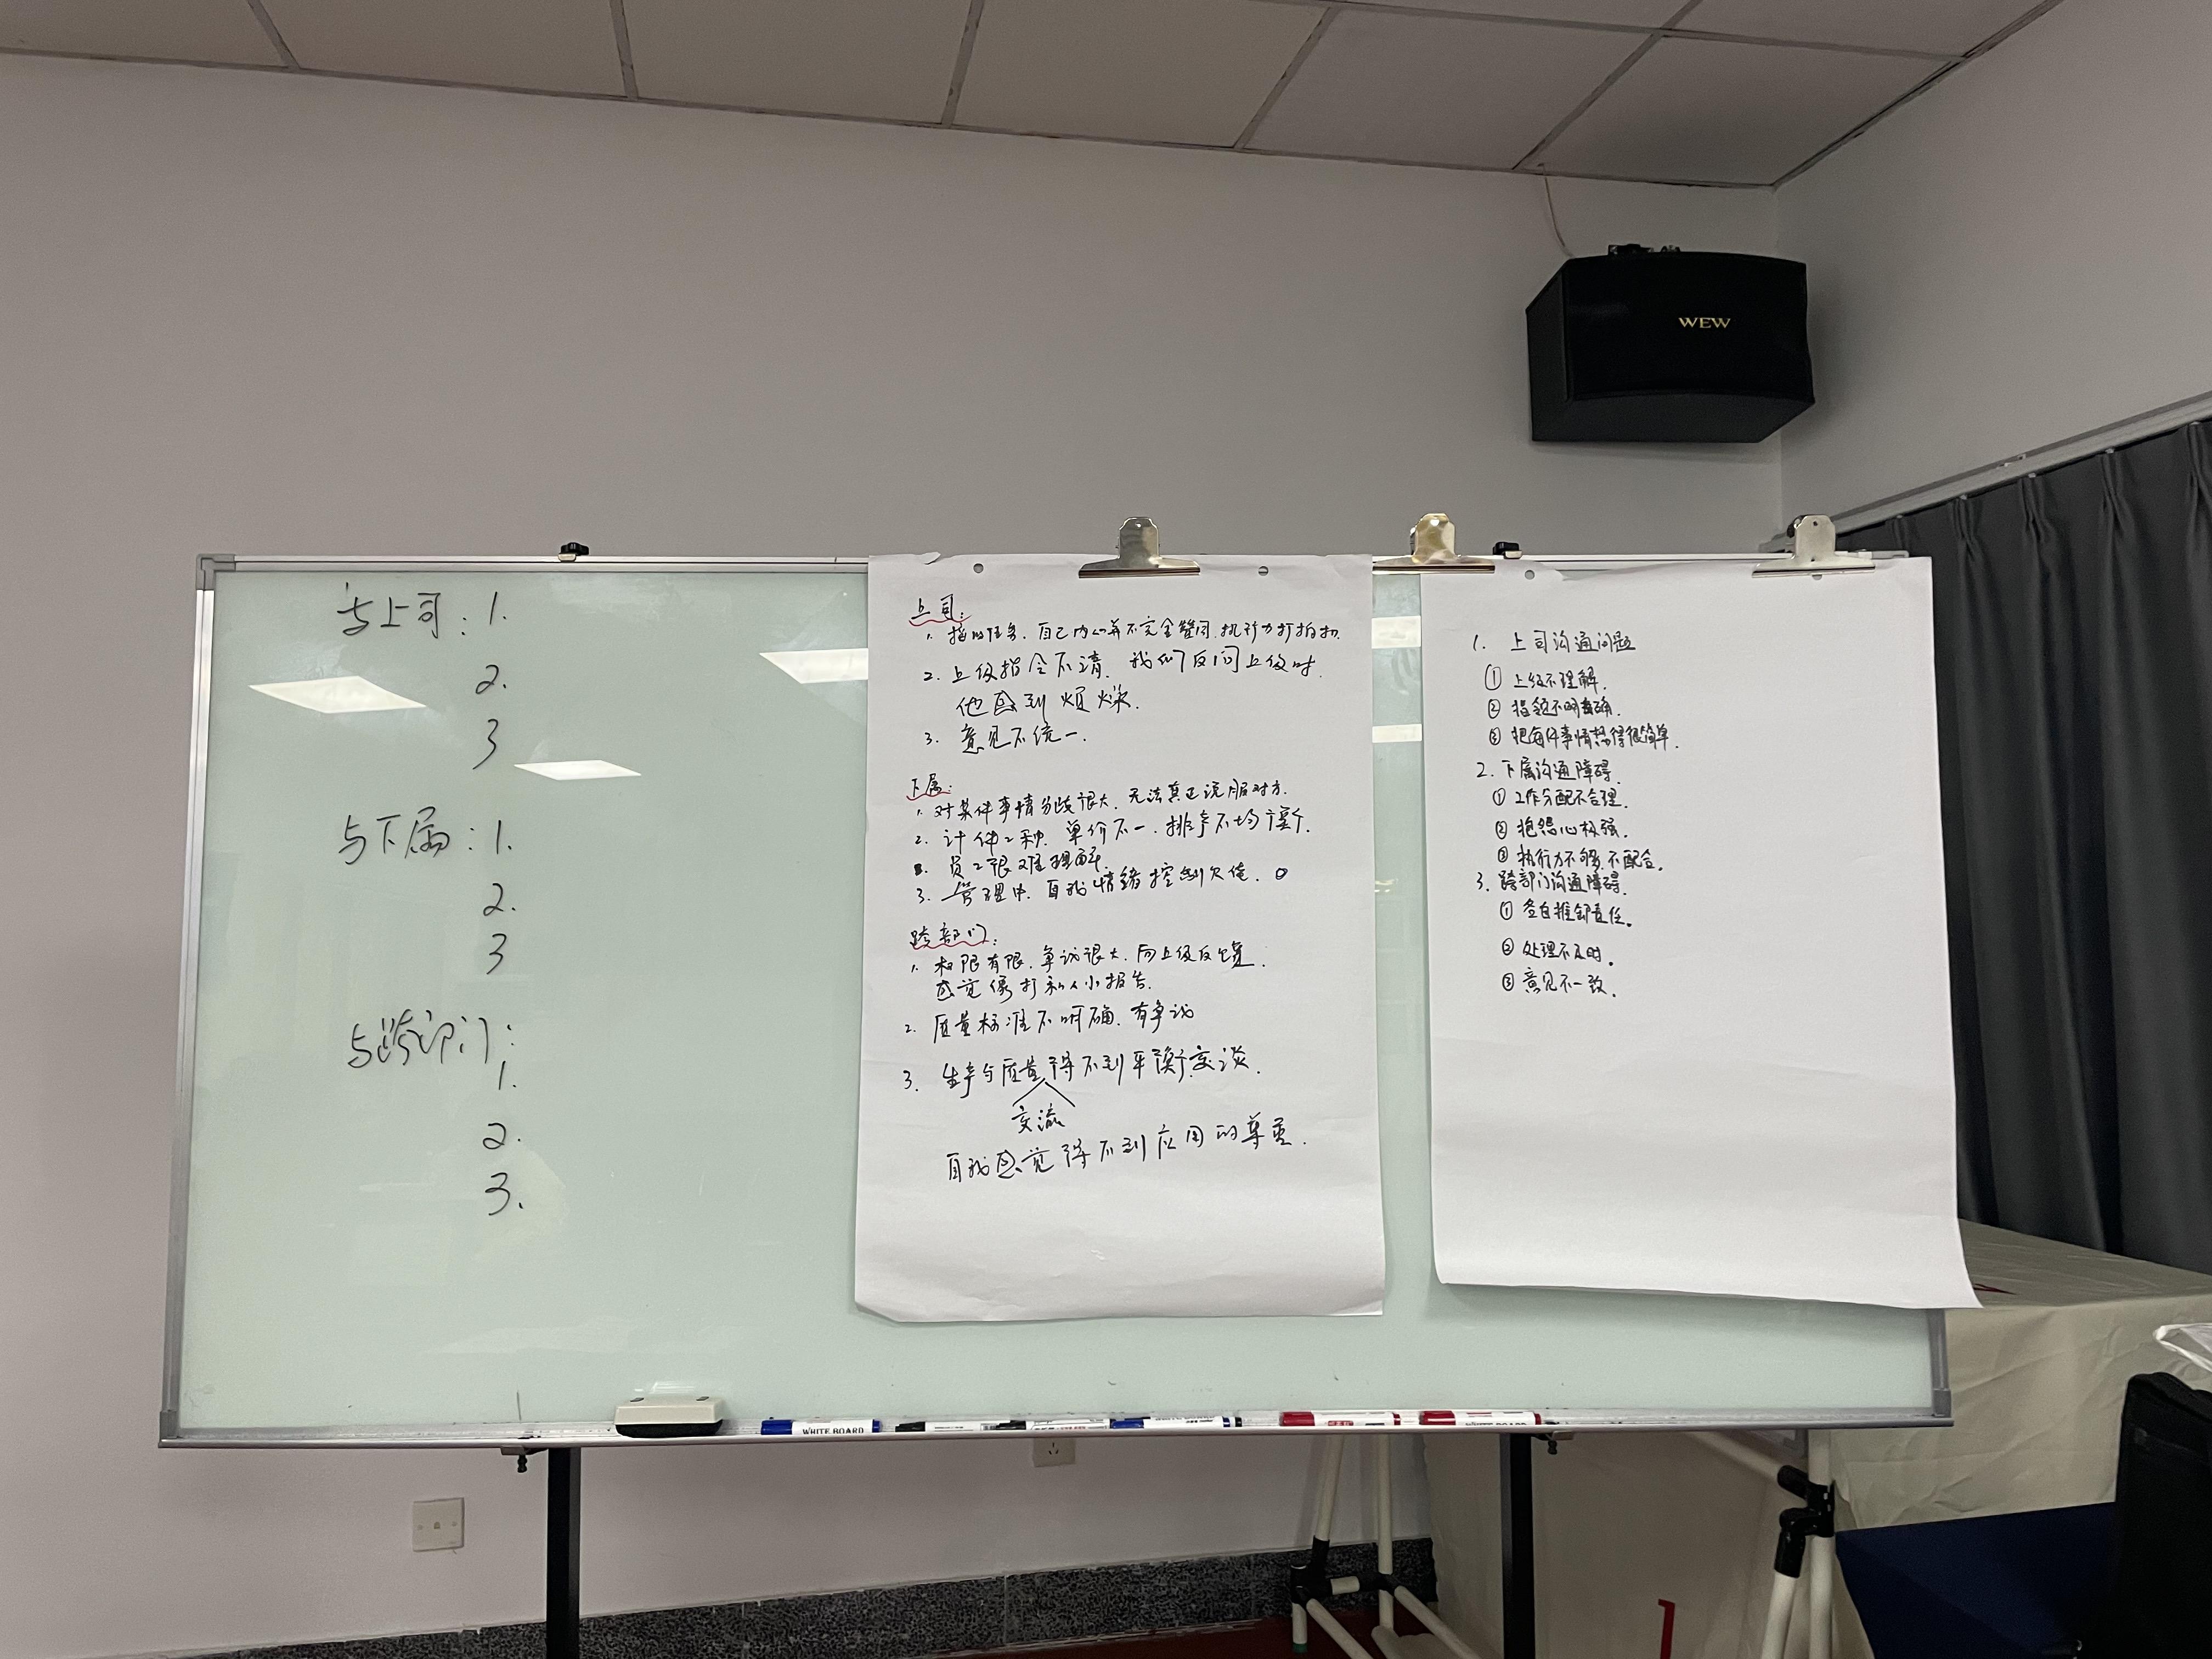 WEW
与上司：1.
2.
3
与下属：1.
2.
3
与跨部门：
1.
2.
3.
上司：
1. 指的任务、自己内心并不完全赞同、执行力打折扣.
2. 上级指令不清、我们反问上级时、
他感到烦燥.
3. 意见不统一.
下属：
1. 对某件事情分歧很大、无法真正说服对方.
2. 计件工种、单价不一、排产不均衡.
员工很难理解.
3. 管理中、自我情绪控制欠佳.
跨部门：
1. 权限有限、争议很大、向上级反馈、
感觉像打私人小报告.
2. 质量标准不明确、有争议
3. 生产与质量得不到平衡交谈.
交流
自我感觉得不到应用的尊重.
1. 上司沟通问题
① 上级不理解.
② 指令不明确.
③ 把每件事情想得很简单.
2. 下属沟通障碍.
① 工作分配不合理.
② 抱怨心极强.
③ 执行力不够,不配合.
3. 跨部门沟通障碍.
① 各自推卸责任.
② 处理不及时.
③ 意见不一致.
WHITE BOARD